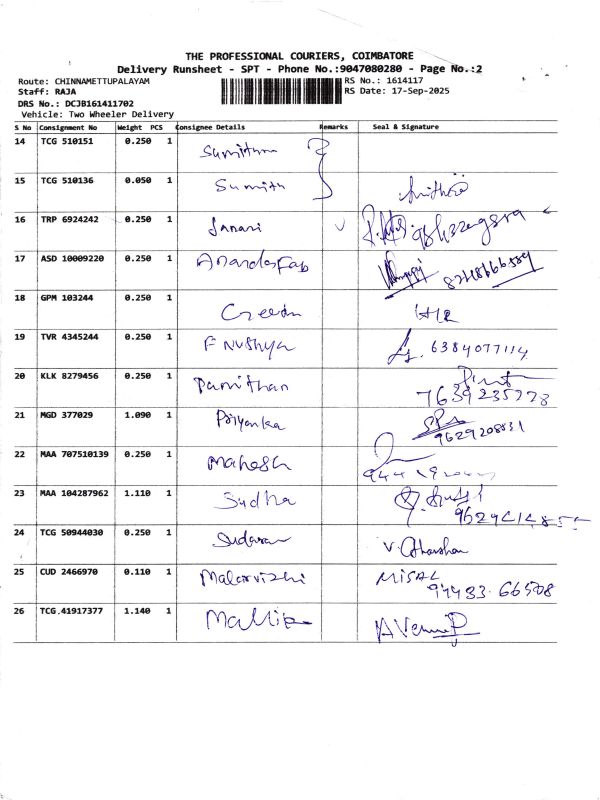 THE PROFESSIONAL COURIERS, COIMBATORE
Delivery Runsheet - SPT - Phone No.:9047080280 - Page No.:2
Route: CHINNAMETTUPALAYAM RS No.: 1614117
Staff: RAJA RS Date: 17-Sep-2025
DRS No.: DCJB161411702
Vehicle: Two Wheeler Delivery
S No Consignment No Weight PCS Consignee Details Remarks Seal & Signature
14 TCG 510151 0.250 1
15 TCG 510136 0.050 1 Sumith
16 TRP 6924242 0.250 1 Janani
17 ASD 10009220 0.250 1
18 GPM 103244 0.250 1
19 TVR 4345244 0.250 1 6384077114
20 KLK 8279456 0.250 1 Pamithan
7639235778
21 MGD 377029 1.090 1 Priyanka
9629208831
22 MAA 707510139 0.250 1 Mahesh
23 MAA 104287962 1.110 1 Sudha
24 TCG 50944030 0.250 1
25 CUD 2466970 0.110 1 Malarvizhi
94433 66508
26 TCG,41917377 1.140 1